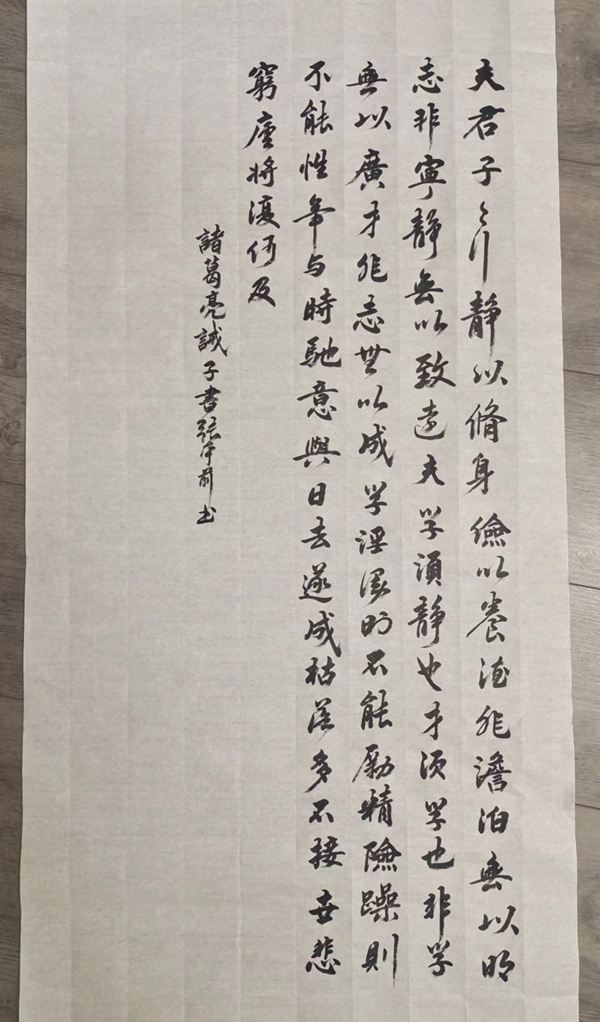 夫君子之行静以脩身儉以養德非澹泊無以明
志非寧静無以致遠夫学須静也才須学也非学
無以廣才非志無以成学淫漫則不能励精險躁則
不能性年与時馳意與日去遂成枯落多不接世悲
窮廬将復何及
諸葛亮誡子書張